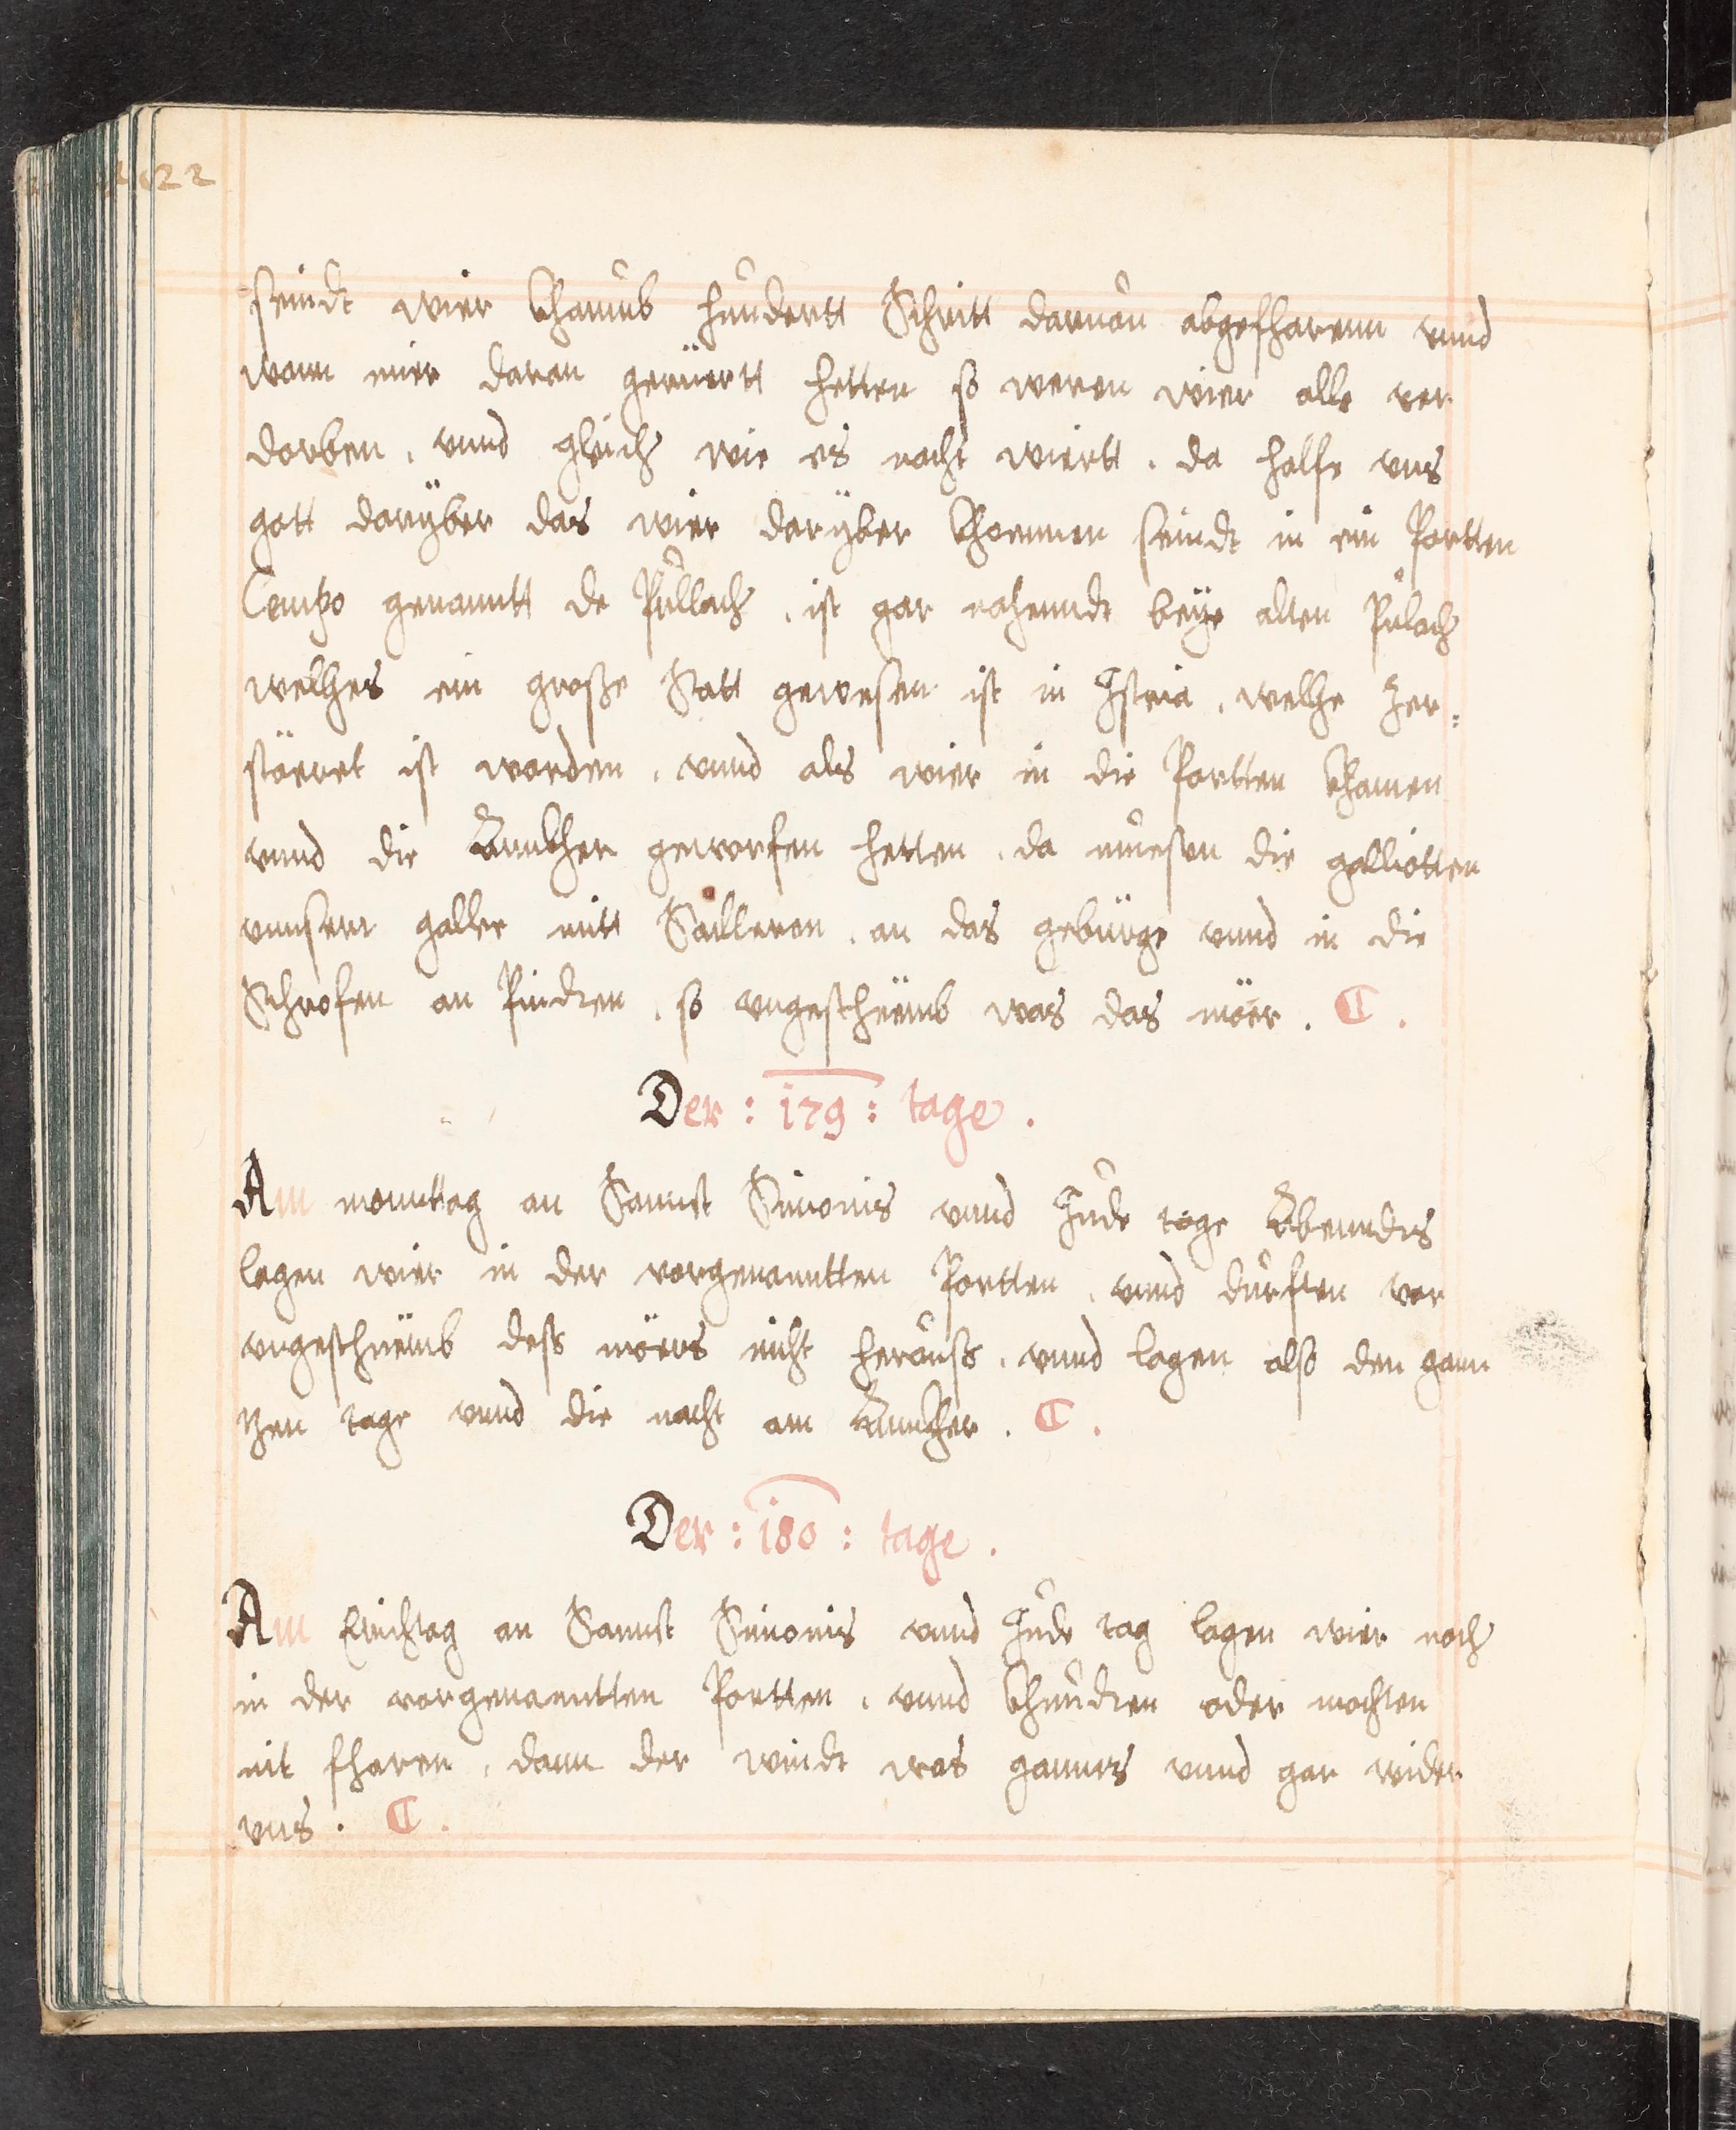 seindt wier khaumb hundertt Schritt daruon abgefharenn vnnd
wann mier daran gerüertt hetten so weren wier alle ver
dorben, vnnd gleich wie es nacht wiertt, da halfe vns
gott darÿber das wier darÿber khommen seindt in ein Portten
genanntt de Pullach, ist gar nahenndt beÿe alten Pulach
welhes ein große Statt gewesen ist in Jstria, welhe zer=
störret ist worden, vnnd als wier in die Portten khamen
vnnd die Annkher geworfen hetten, da muesten die galliotten
vnnsern gallee mitt Sailleren, an das gebürge vnnd in die
Schrofen an Pinden, so vngesthüemb was das möer. C.
Der : 179 : tage.
Am monntag an Sannct Simonis vnnd Jude tage Abenndts
lagen wier in der vorgenanntten Portten, vnnd durften vor
vngesthüemb dess möers nicht herauss, vnnd lagen also den gann
tzen tage vnnd die nacht am Annkher. C.
Der : 180 : tage.
Am Erichtag an Sannct Simonis vnnd Jude tag lagen wier noch
in der vorgenanntten Portten, vnnd khundten oder mochten
nit fharen, dann der windt was gannts vnnd gar wider
vns. C.